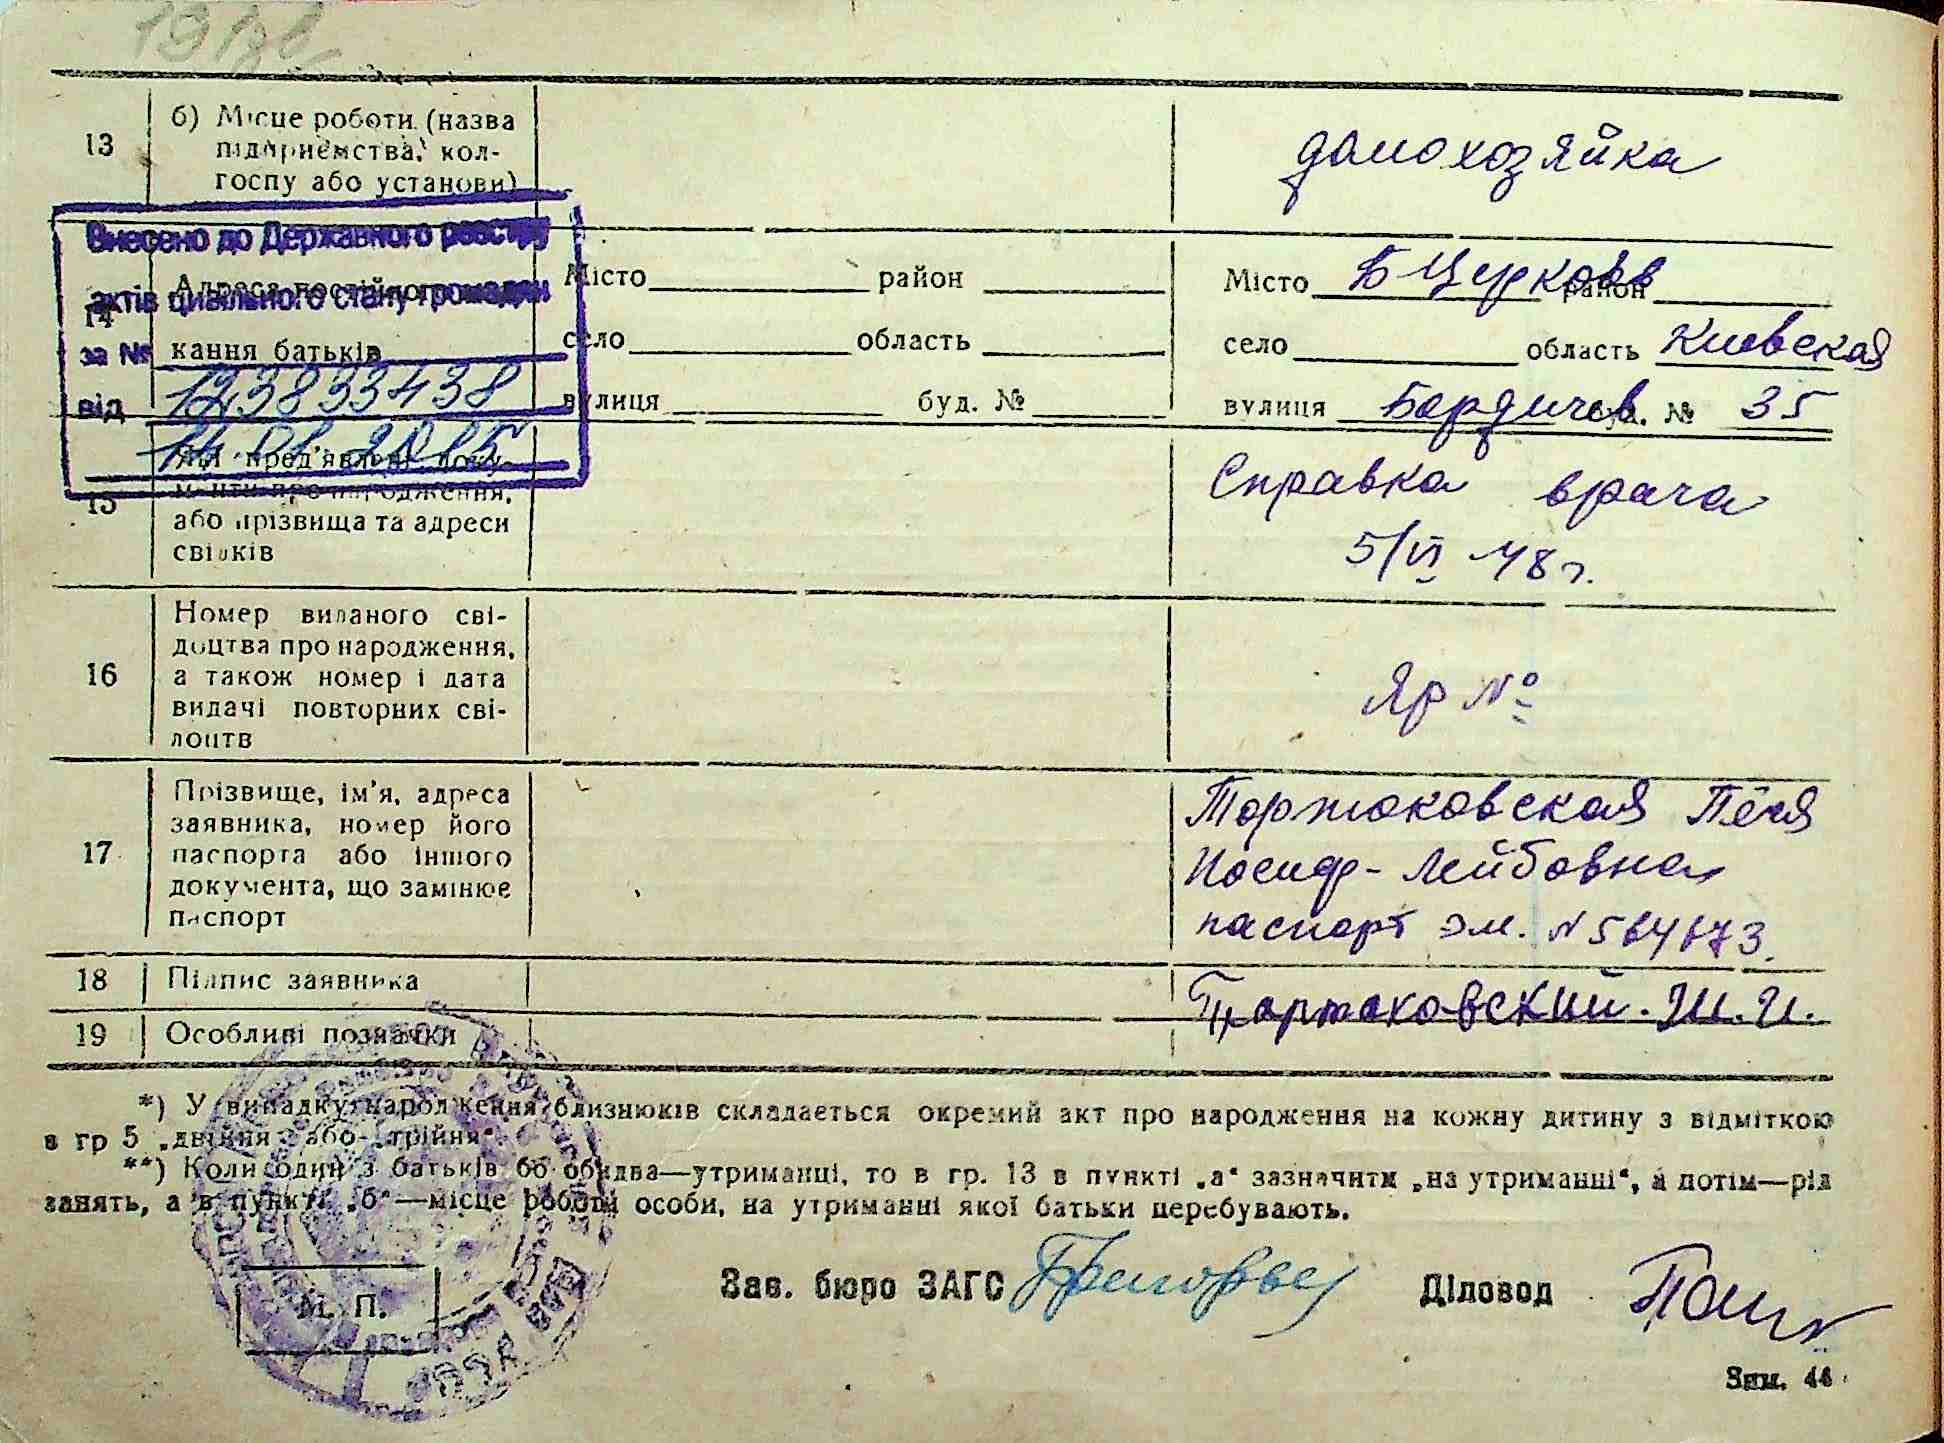 13
б) Місце роботи (назва
підприємства, кол-
госпу або установи)
домохозяйка
Внесено до Державного реєстру
актів цивільного стану громадян
за №
123833438
від
14
Адреса постійного
кання батьків
Місто район
село область
вулиця буд. №
Місто Б Церковь район
село область Киевская
вулиця Бардичев буд. № 35
15
які пред'явлені доку-
менти про народження,
або прізвища та адреси
свідків
Справка врача
5/VI 48 г.
16
Номер виданого сві-
доцтва про народження,
а також номер і дата
видачі повторних сві-
доцтв
Яр №
17
Прізвище, ім'я, адреса
заявника, номер його
паспорта або іншого
документа, що замінює
паспорт
Иосиф-Лейбовна
паспорт
18 Підпис заявника
Тартаковский. Ш. И.
19 Особливі позначки
*) У випадку народження близнюків складається окремий акт про народження на кожну дитину з відміткою
в гр 5 „двійня“ або „трійня“.
**) Коли один з батьків бо обидва—утриманці, то в гр. 13 в пункті „а“ зазначити „на утриманні“, а потім—рід
занять, а в пункті „б“—місце роботи особи, на утриманні якої батьки перебувають.
М. П.
Зав. бюро ЗАГС
Діловод
Зам. 44